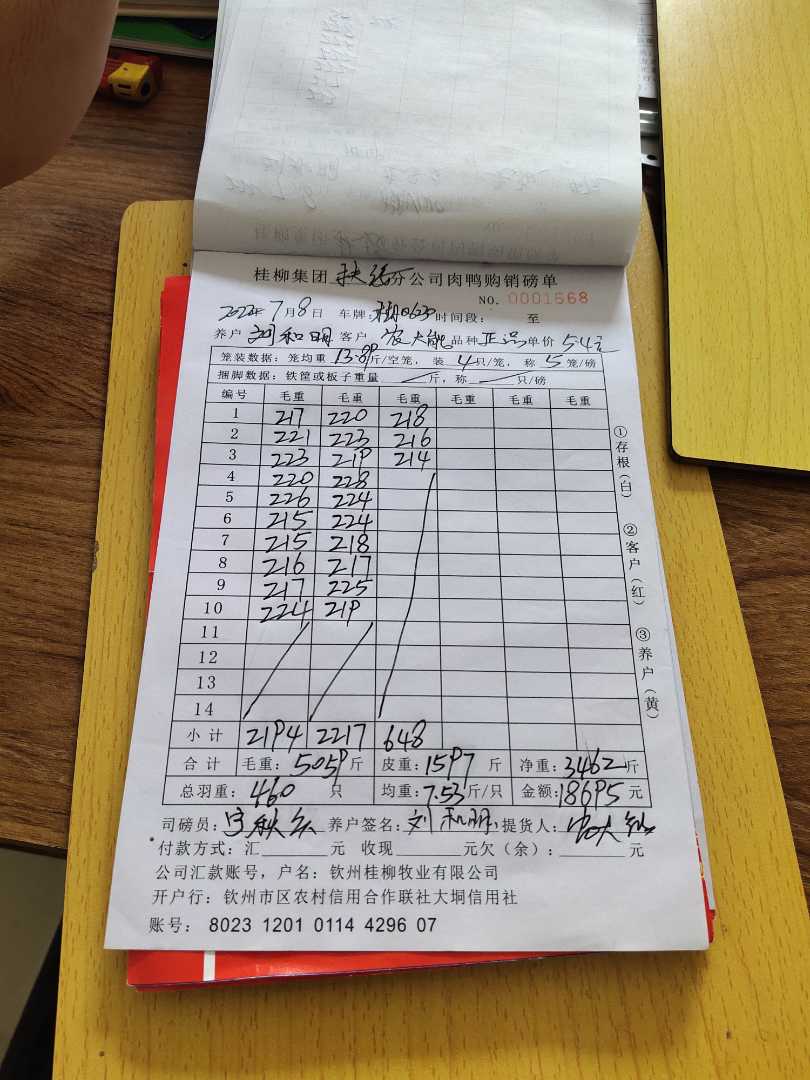 桂柳集团 扶绥分公司肉鸭购销磅单
NO. 0001568
2022年7月8日 车牌: 时间段: 至
养户 刘和明 客户 农大能 品种 正品 单价 5.4元
笼装数据: 笼均重 13.89斤/空笼, 装 4只/笼, 称 5笼/磅
捆脚数据: 铁筐或板子重量 斤, 称 只/磅
编号 毛重 毛重 毛重 毛重 毛重 毛重
1 217 220 218
2 221 223 216
3 223 219 214
4 220 228
5 226 224
6 215 224
7 215 218
8 216 217
9 217 225
10 224 219
11
12
13
14
小计 2194 2217 648
合计 毛重: 5059斤 皮重: 1597斤 净重: 3462斤
总羽重: 460只 均重: 7.53斤/只 金额: 18695元
司磅员: 养户签名: 刘和明 提货人:
付款方式: 汇 元 收现 元欠(余): 元
公司汇款账号, 户名: 钦州桂柳牧业有限公司
开户行: 钦州市区农村信用合作联社大垌信用社
账号: 8023 1201 0114 4296 07
①存根(白)
②客户(红)
③养户(黄)